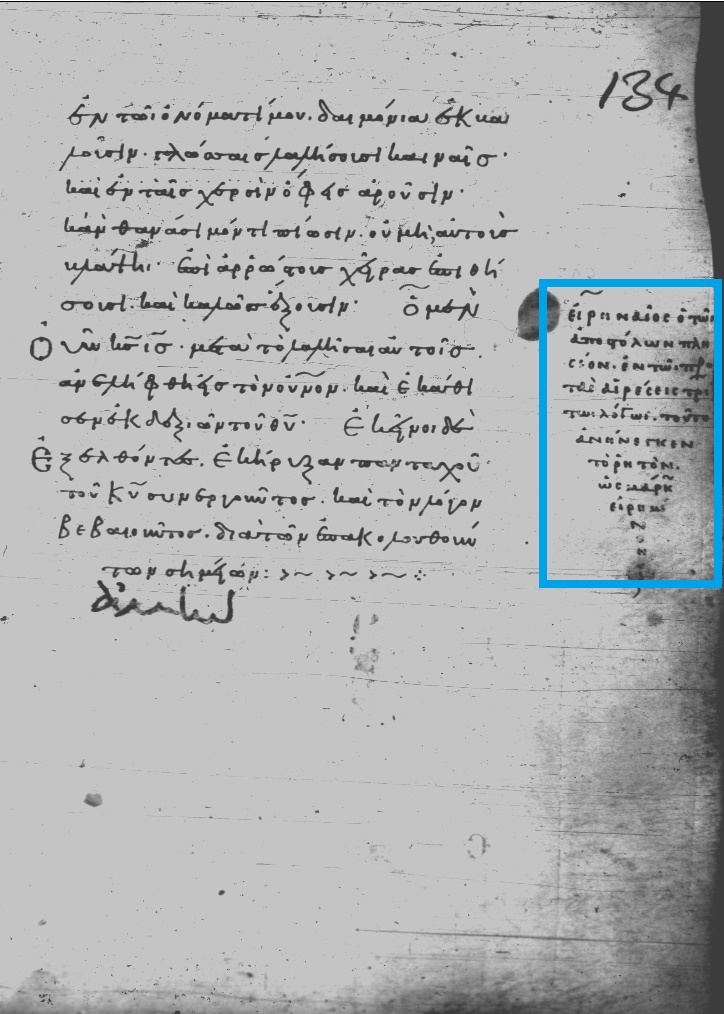 134
ἐν τῶι ὀνόματί μου. δαιμόνια ἐκβα
λοῦσιν. γλώσσαις λαλήσουσι καιναῖσ·
καὶ ἐν ταῖσ χερσὶν ὄφεις ἀροῦσιν·
κἂν θανάσιμόν τι πίωσιν. οὐ μὴ αὐτοὺσ
βλάψη· ἐπὶ ἀρρώστουσ χεῖρασ ἐπιθή
σουσι. καὶ καλῶσ ἕξουσιν· ὁ μὲν
οὖν κ̅σ̅ ι̅σ̅. μετὰ τὸ λαλῆσαι αὐτοῖσ.
ἀνελήφθη εἰσ τὸν οὐ̅νον. καὶ ἐκάθι
σεν ἐκ δεξιῶν τοῦ θ̅υ̅. ἐκεῖνοι δὲ
ἐξελθόντεσ. ἐκήρυξαν πανταχοῦ·
τοῦ κ̅υ̅ συνεργοῦντοσ. καὶ τὸν λόγον
βεβαιοῦντοσ. διὰ τῶν ἐπακολουθούν
των σημείων:
εἰρηναῖος ὁ τῶν
ἀποστόλων πλη
σίον. ἐν τῶι πρὸ
τὰς αἱρέσεις τρί
τωι λόγωι. τοῦτο
ἀνήνεγκεν
τὸ ῥητὸν.
ὡς μάρκ
εἰρημέ